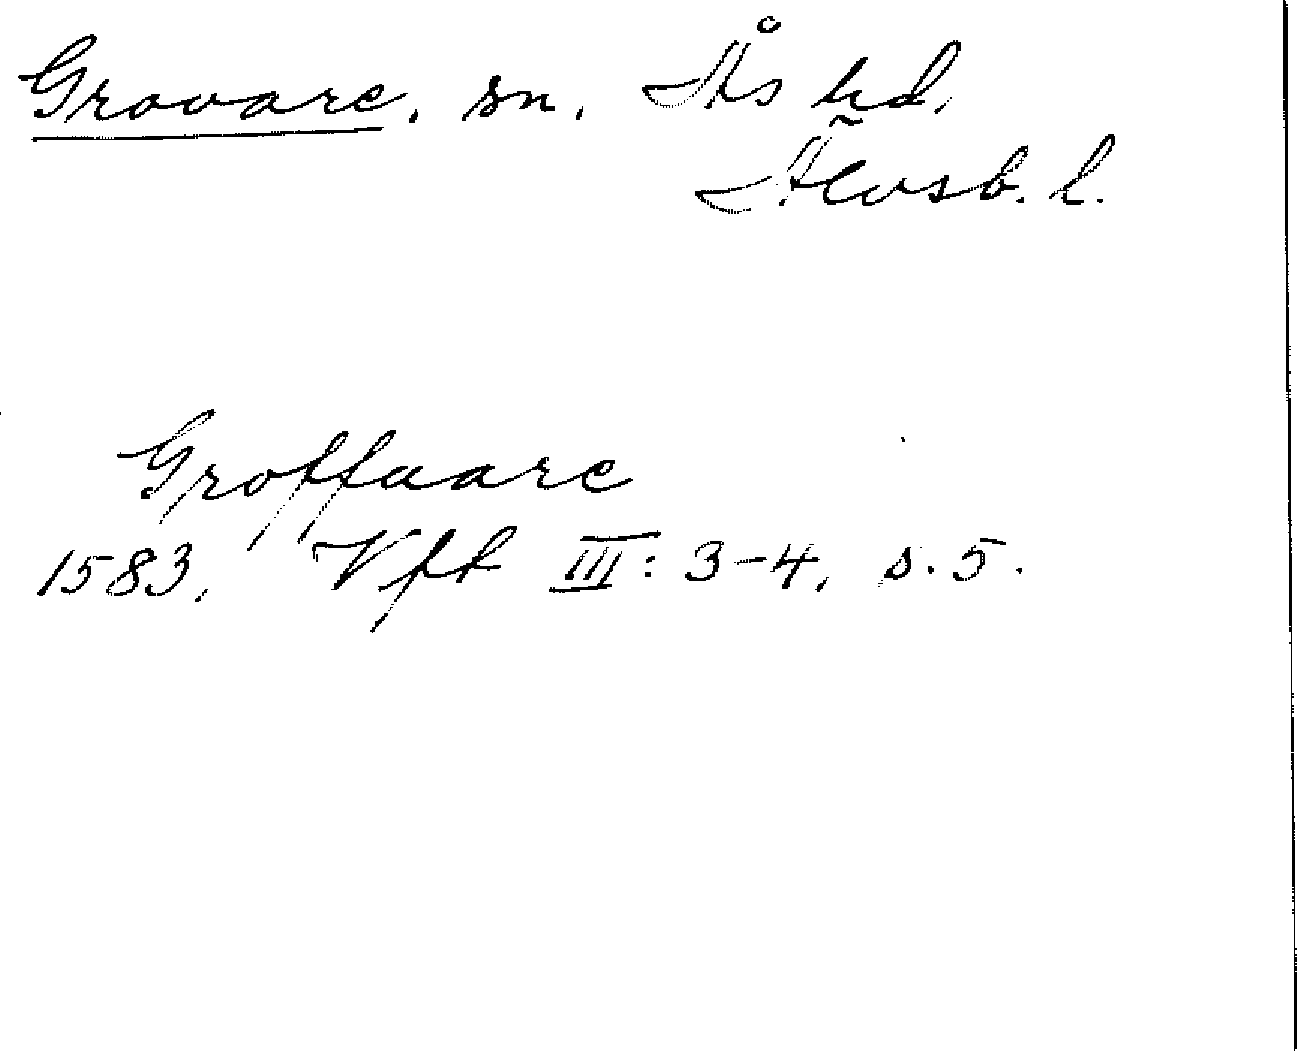 Grovare, sn. Ås hd.
Älvsb. l.
Groffuare
1583. Vft III: 3-4, s. 5.